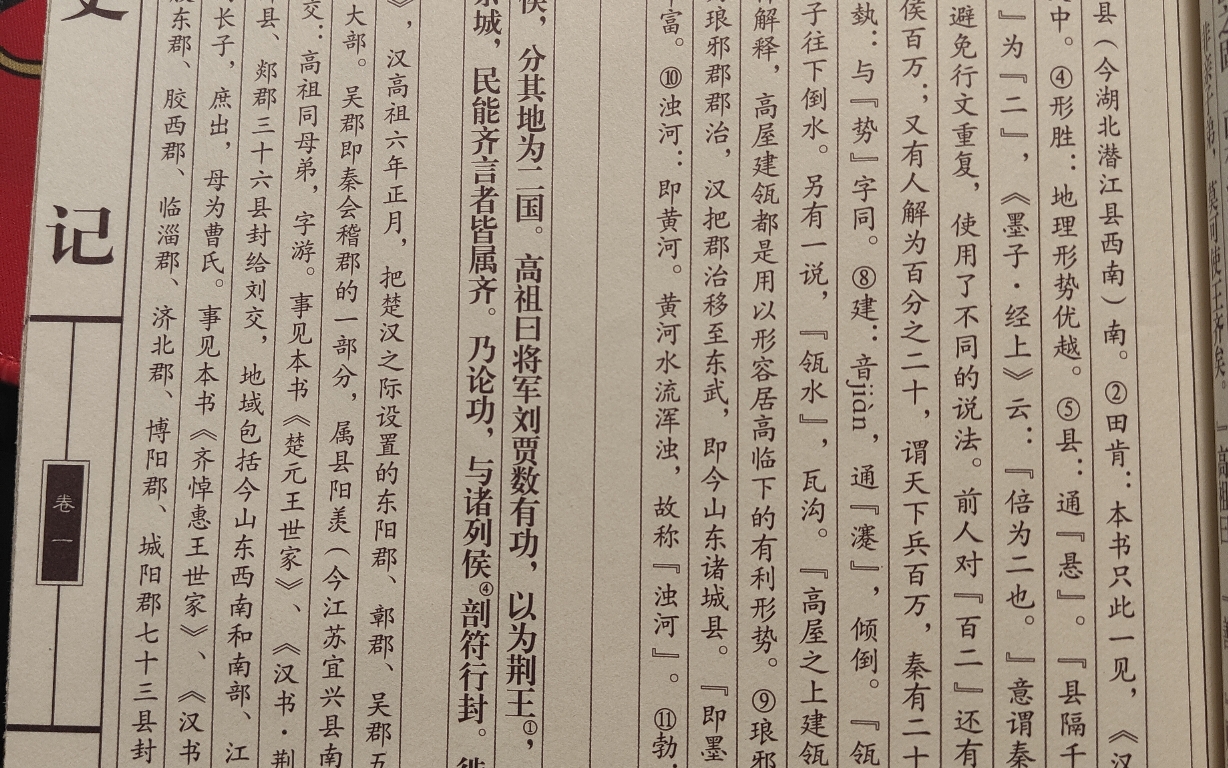 县（今湖北潜江县西南）南。②田肯：本书只此一见，《汉
中。④形胜：地理形势优越。⑤县：通『悬』。『县隔千
』为『二』，《墨子·经上》云：『倍为二也。』意谓秦
避免行文重复，使用了不同的说法。前人对『百二』还有
侯百万；又有人解为百分之二十，谓天下兵百万，秦有二十
埶：与『势』字同。⑧建：音jiàn，通『瀽』，倾倒。『瓴
子往下倒水。另有一说，『瓴水』，瓦沟。『高屋之上建瓴
解释，高屋建瓴都是用以形容居高临下的有利形势。⑨琅邪
琅邪郡郡治，汉把郡治移至东武，即今山东诸城县。『即墨
富。⑩浊河：即黄河。黄河水流浑浊，故称『浊河』。⑪勃
侯，分其地为二国。高祖曰将军刘贾数有功，以为荆王①，
城，民能齐言者皆属齐。乃论功，与诸列侯④剖符行封。徙
》，汉高祖六年正月，把楚汉之际设置的东阳郡、鄣郡、吴郡五
大部。吴郡即秦会稽郡的一部分，属县阳羡（今江苏宜兴县南
交：高祖同母弟，字游。事见本书《楚元王世家》、《汉书·荆
县、郯郡三十六县封给刘交，地域包括今山东西南和南部、江
长子，庶出，母为曹氏。事见本书《齐悼惠王世家》、《汉书
胶东郡、胶西郡、临淄郡、济北郡、博阳郡、城阳郡七十三县封
史记
卷一